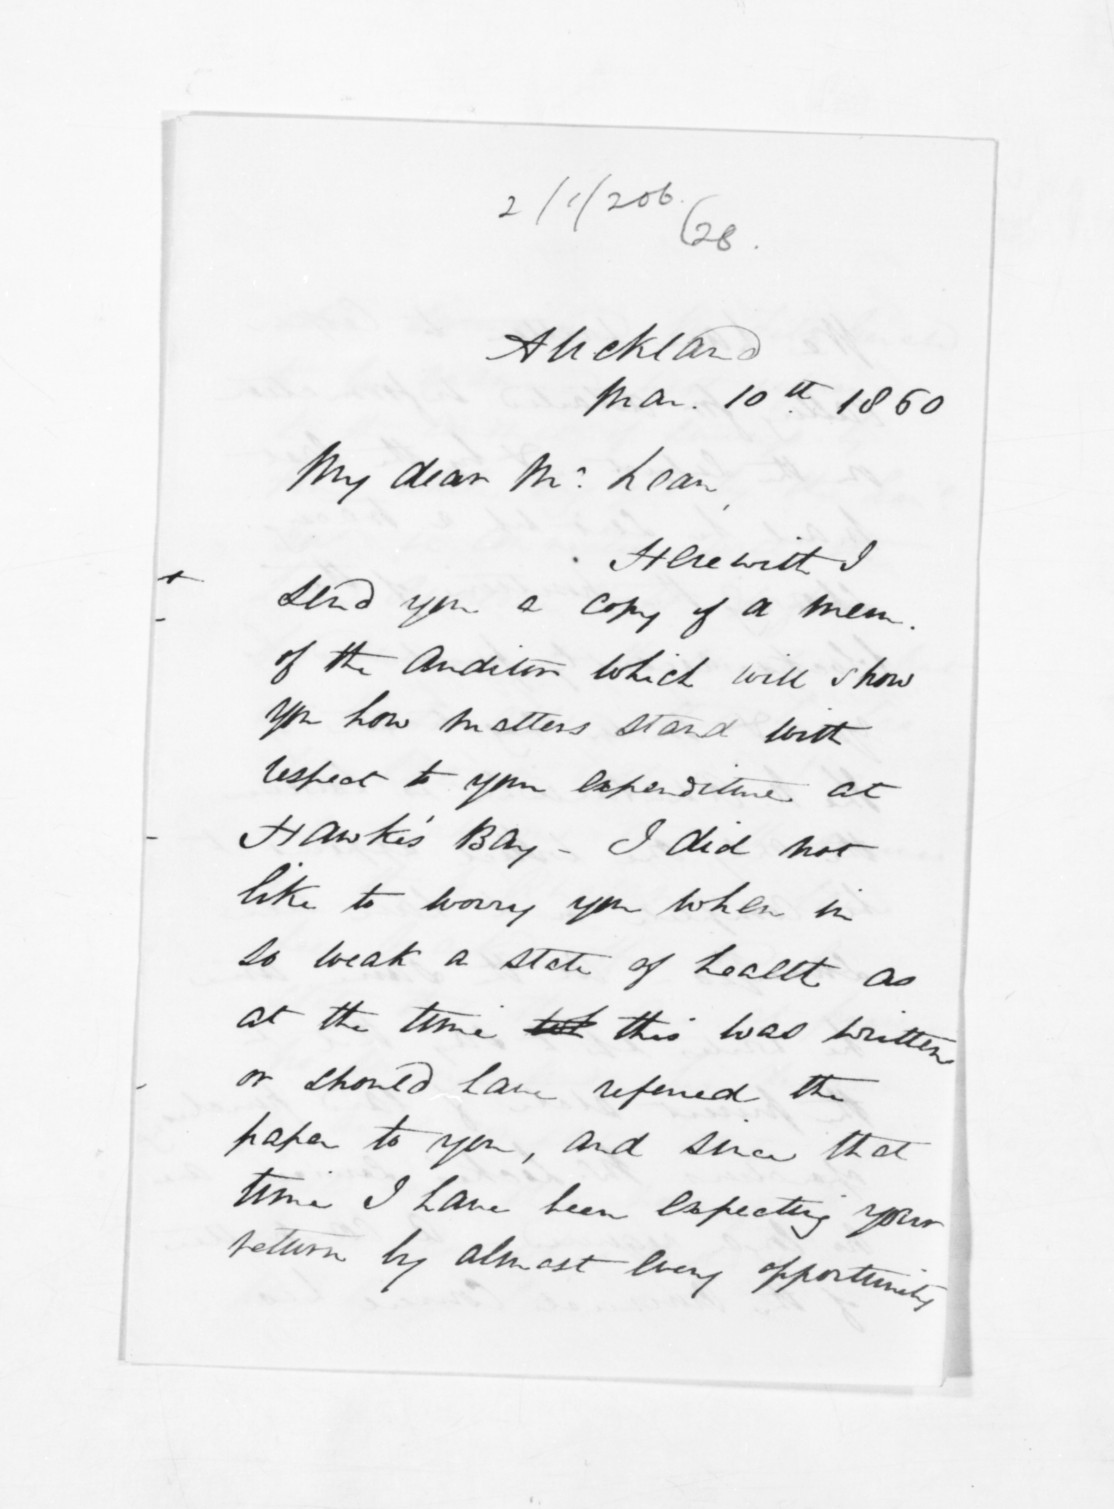 2/1/206/28.
Auckland
Mar. 10th 1860
My dear Mc. Lean,
Herewith I
send you a copy of a mem.
of the Auditor which will show
you how matters stand with
respect to your expenditure at
Hawke's Bay - I did not
like to worry you when in
so weak a state of health as
at the time this was written
or should have referred the
paper to you, and since that
time I have been expecting your
return by almost every opportunity